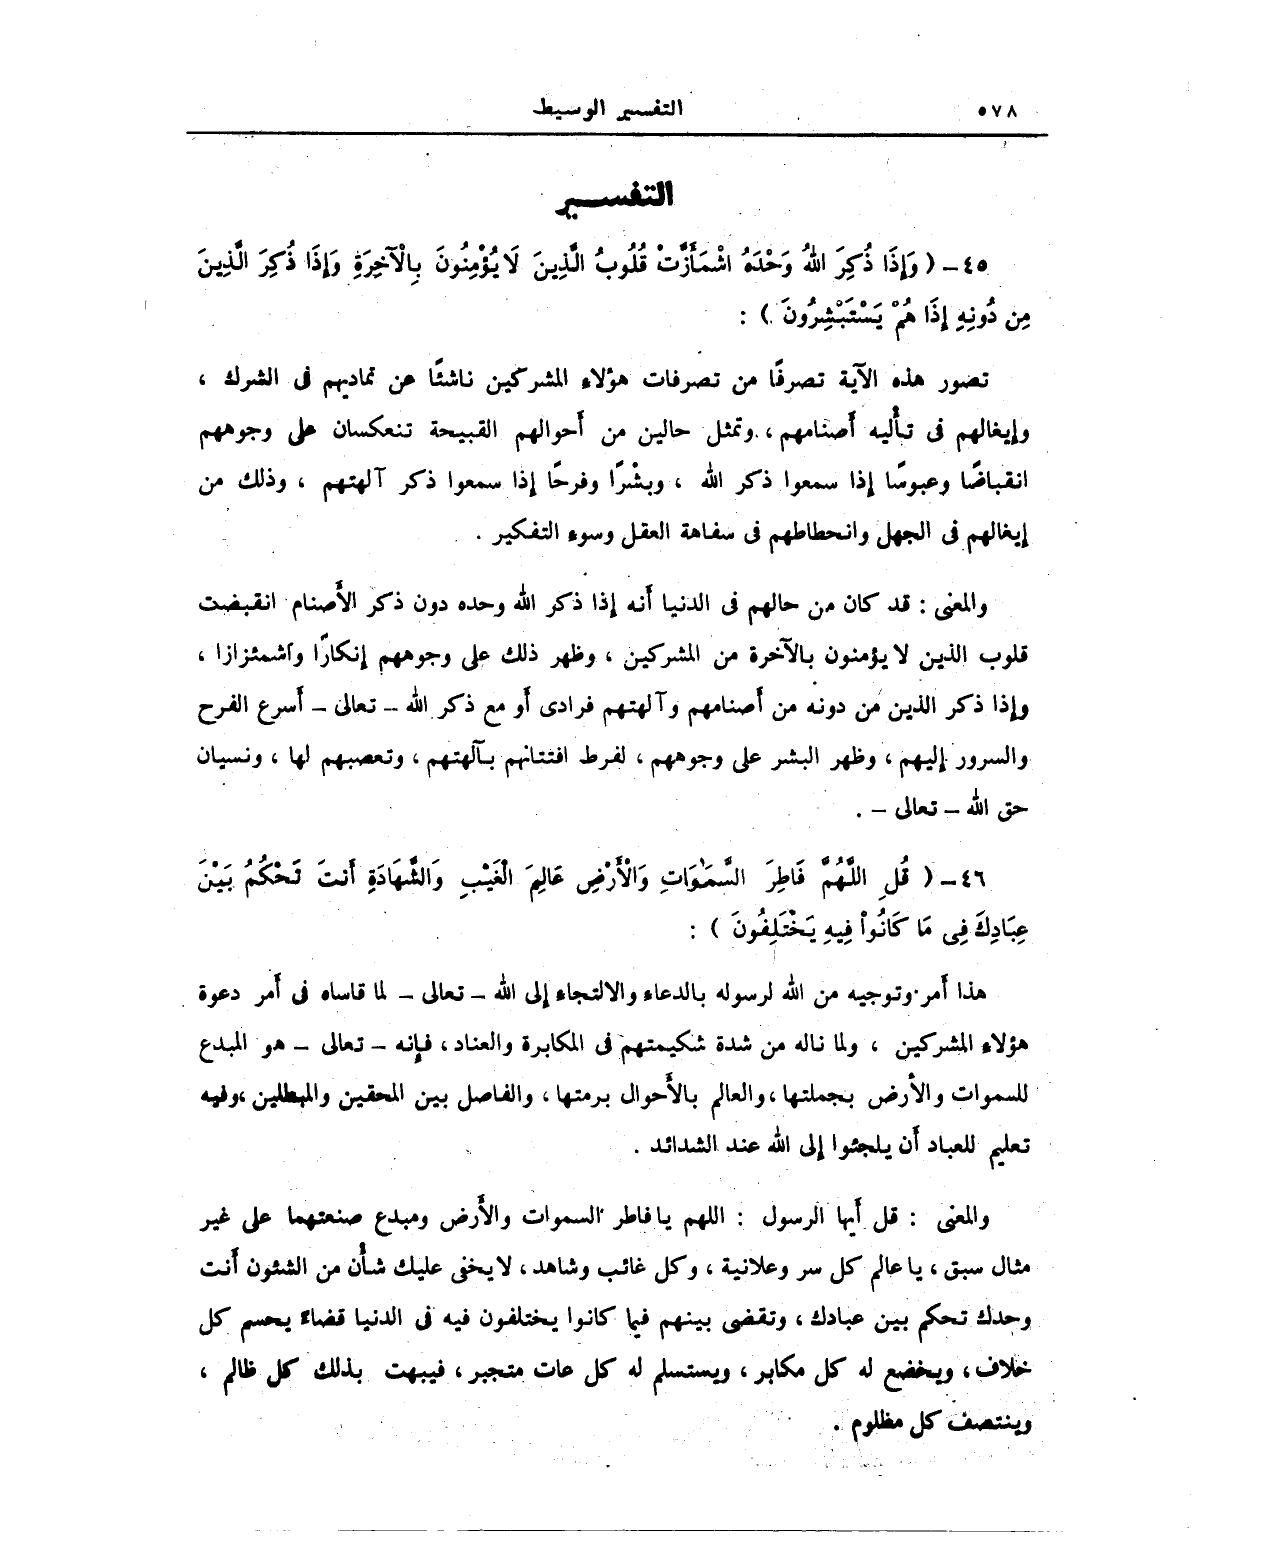 ٥٧٨ التفسير الوسيط
التفسير
٤٥ – ( وَإِذَا ذُكِرَ اللهُ وَحْدَهُ اشْمَأَزَّتْ قُلُوبُ الَّذِينَ لَا يُؤْمِنُونَ بِالْآخِرَةِ وَإِذَا ذُكِرَ الَّذِينَ
مِن دُونِهِ إِذَا هُمْ يَسْتَبْشِرُونَ ) :
تصور هذه الآية تصرفًا من تصرفات هؤلاء المشركين ناشئًا عن تماديهم فى الشرك ،
وإيغالهم فى تأليه أصنامهم ، وتمثل حالين من أحوالهم القبيحة تنعكسان على وجوههم
انقباضًا وعبوسًا إذا سمعوا ذكر الله ، وبشْرًا وفرحًا إذا سمعوا ذكر آلهتهم ، وذلك من
إيغالهم فى الجهل وانحطاطهم فى سفاهة العقل وسوء التفكير .
والمعنى : قد كان من حالهم فى الدنيا أنه إذا ذكر الله وحده دون ذكر الأصنام انقبضت
قلوب الذين لا يؤمنون بالآخرة من المشركين ، وظهر ذلك على وجوههم إنكارًا واشمئزازا ،
وإذا ذكر الذين من دونه من أصنامهم وآلهتهم فرادى أو مع ذكر الله – تعالى – أسرع الفرح
والسرور إليهم ، وظهر البشر على وجوههم ، لفرط افتتانهم بآلهتهم ، وتعصبهم لها ، ونسيان
حق الله – تعالى – .
٤٦ – ( قُلِ اللَّهُمَّ فَاطِرَ السَّمَٰوَاتِ وَالْأَرْضِ عَالِمَ الْغَيْبِ وَالشَّهَادَةِ أَنتَ تَحْكُمُ بَيْنَ
عِبَادِكَ فِى مَا كَانُوا فِيهِ يَخْتَلِفُونَ ) :
هذا أمر وتوجيه من الله لرسوله بالدعاء والالتجاء إلى الله – تعالى – لما قاساه فى أمر دعوة
هؤلاء المشركين ، ولما ناله من شدة شكيمتهم فى المكابرة والعناد ، فإنه – تعالى – هو المبدع
للسموات والأرض بجملتها ، والعالم بالأحوال برمتها ، والفاصل بين المحقين والمبطلين ، وفيه
تعليم للعباد أن يلجئوا إلى الله عند الشدائد .
والمعنى : قل أيها الرسول : اللهم يا فاطر السموات والأرض ومبدع صنعتهما على غير
مثال سبق ، يا عالم كل سر وعلانية ، وكل غائب وشاهد ، لا يخفى عليك شأن من الشئون أنت
وحدك تحكم بين عبادك ، وتقضى بينهم فيما كانوا يختلفون فيه فى الدنيا قضاءً يحسم كل
خلاف ، ويخضع له كل مكابر ، ويستسلم له كل عات متجبر ، فيبهت بذلك كل ظالم ،
وينتصف كل مظلوم .